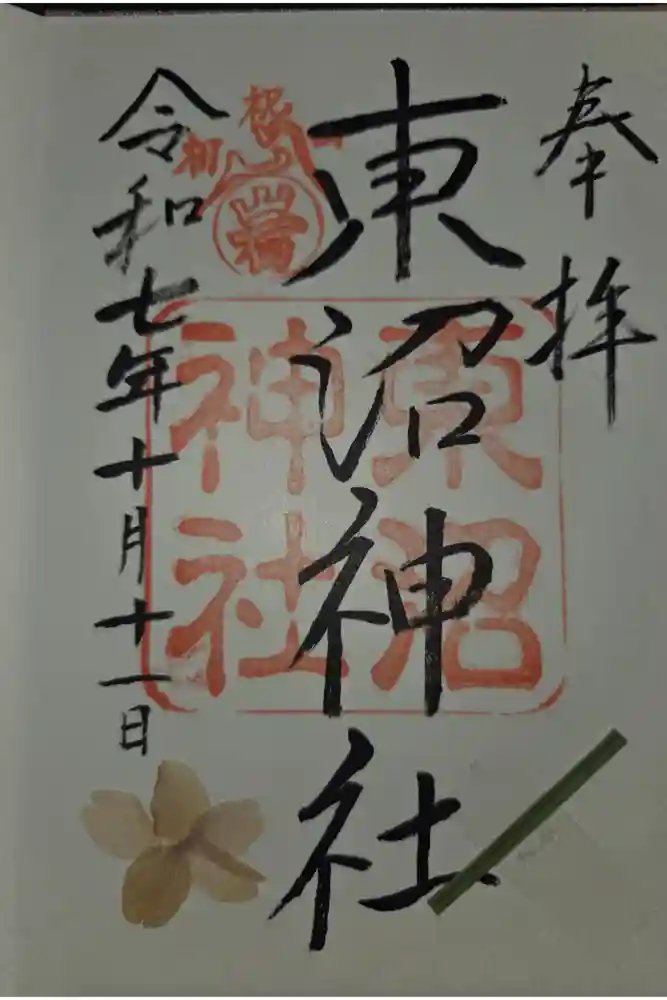 奉拝
東沼神社
令和七年十月十一日
東沼
神社